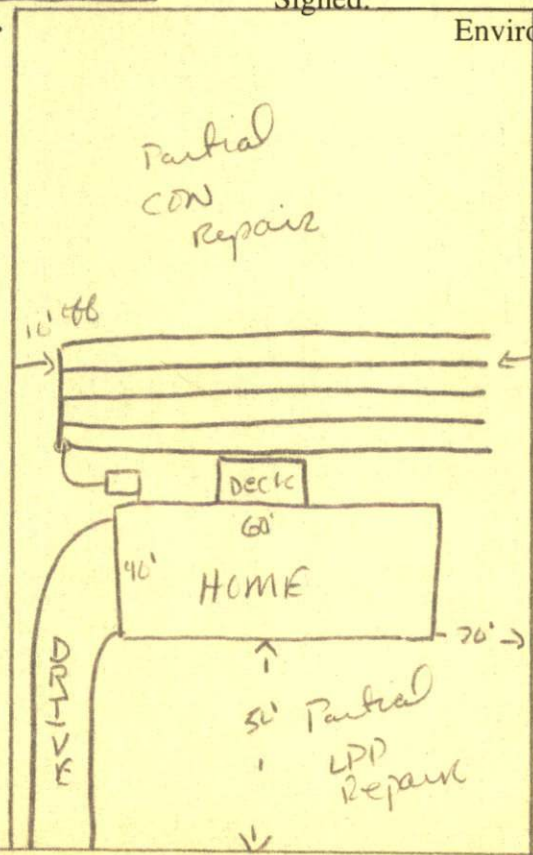 Signed:
Enviro
Partial
CON
Repair
10' off
DECK
60'
40'
HOME
20'
DRIVE
50'
Partial
LPP
Repair